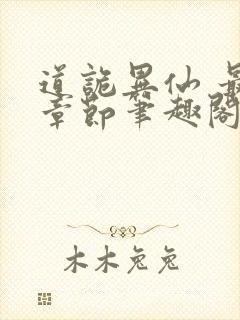 道詭異仙 最
章節筆趣閣
木木兔兔